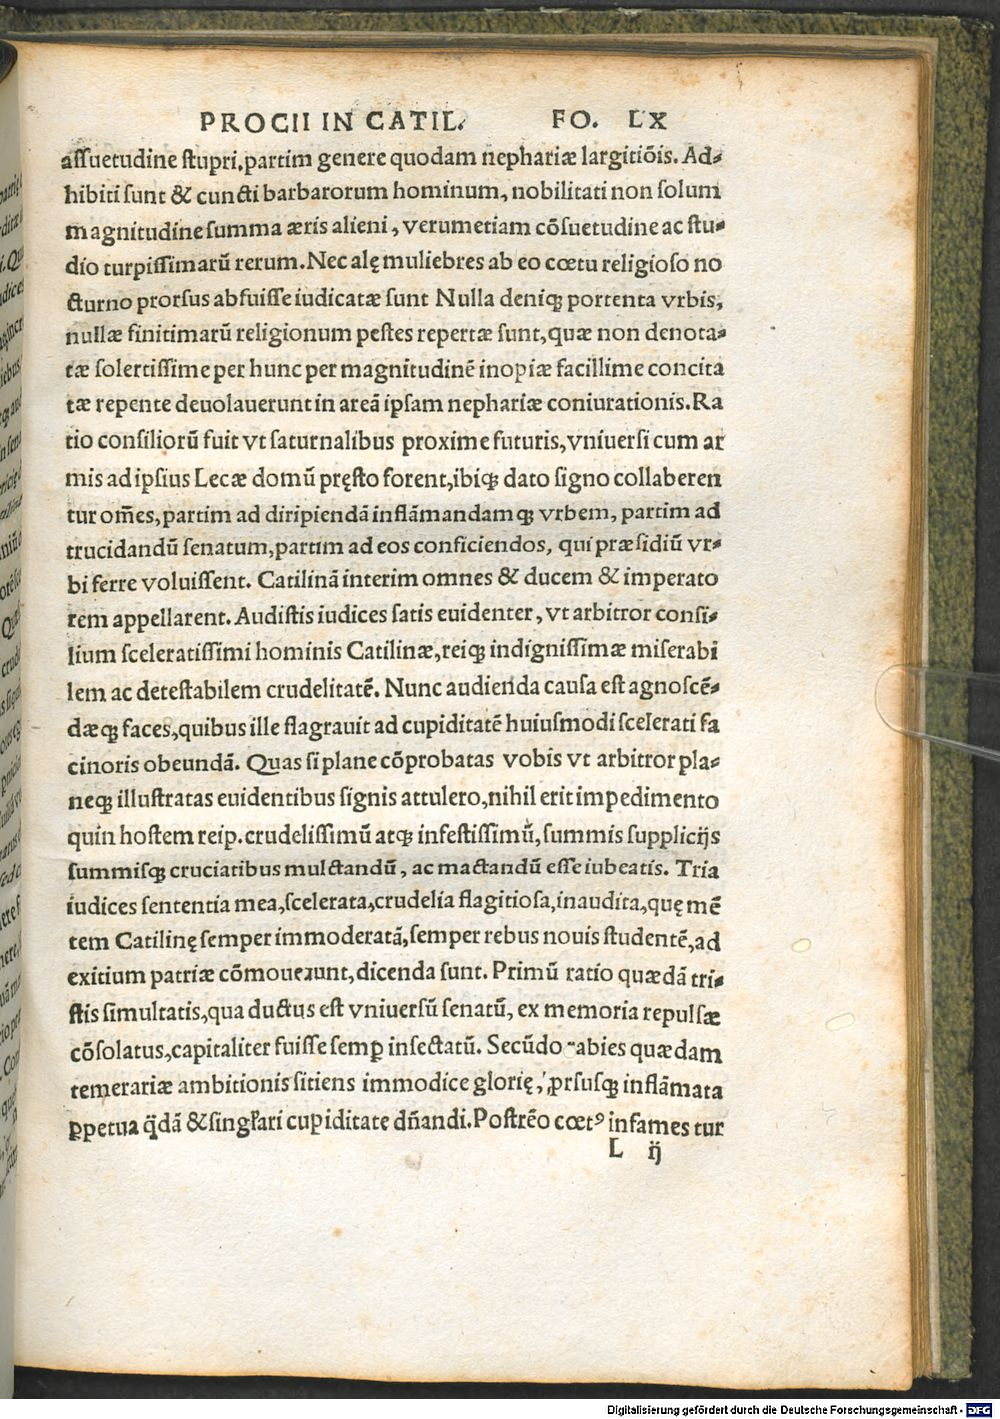 PROCII IN CATIL. FO. LX
assuetudine stupri, partim genere quodam nephariæ largitiõis. Ad-
hibiti sunt & cuncti barbarorum hominum, nobilitati non solum
magnitudine summa æris alieni, verumetiam cõsuetudine ac stu-
dio turpissimarũ rerum. Nec alę muliebres ab eo cœtu religioso no
cturno prorsus abfuisse iudicatæ sunt Nulla deniqꝫ portenta vrbis,
nullæ finitimarũ religionum pestes repertæ sunt, quæ non denota-
tæ solertissime per hunc per magnitudinẽ inopiæ facillime concita
tæ repente deuolauerunt in areã ipsam nephariæ coniurationis. Ra
tio consiliorũ fuit vt saturnalibus proxime futuris, vniuersi cum ar
mis ad ipsius Lecæ domũ pręsto forent, ibiqꝫ dato signo collaberen
tur om̃es, partim ad diripiendã inflãmandamqꝫ vrbem, partim ad
trucidandũ senatum, partim ad eos conficiendos, qui præsidiũ vr-
bi ferre voluissent. Catilinã interim omnes & ducem & imperato
rem appellarent. Audistis iudices satis euidenter, vt arbitror consi-
lium sceleratissimi hominis Catilinæ, reiqꝫ indignissimæ miserabi
lem ac detestabilem crudelitatẽ. Nunc audienda causa est agnoscẽ-
dæqꝫ faces, quibus ille flagrauit ad cupiditatẽ huiusmodi scelerati fa
cinoris obeundã. Quas si plane cõprobatas vobis vt arbitror pla-
neqꝫ illustratas euidentibus signis attulero, nihil erit impedimento
quin hostem reip. crudelissimũ atqꝫ infestissimũ, summis supplicijs
summisqꝫ cruciatibus mulctandũ, ac mactandũ esse iubeatis. Tria
iudices sententia mea, scelerata, crudelia flagitiosa, inaudita, quę mẽ
tem Catilinę semper immoderatã, semper rebus nouis studentẽ, ad
exitium patriæ cõmouerunt, dicenda sunt. Primũ ratio quædã tri-
stis simultatis, qua ductus est vniuersũ senatũ, ex memoria repulsæ
cõsolatus, capitaliter fuisse semꝑ insectatũ. Secũdo abies quædam
temerariæ ambitionis sitiens immodice glorię, ꝓrsusqꝫ inflãmata
ꝑpetua q̈dã & singl'ari cupiditate dñandi. Postrẽo cœtꝰ infames tur
L ij
Digitalisierung gefördert durch die Deutsche Forschungsgemeinschaft - DFG